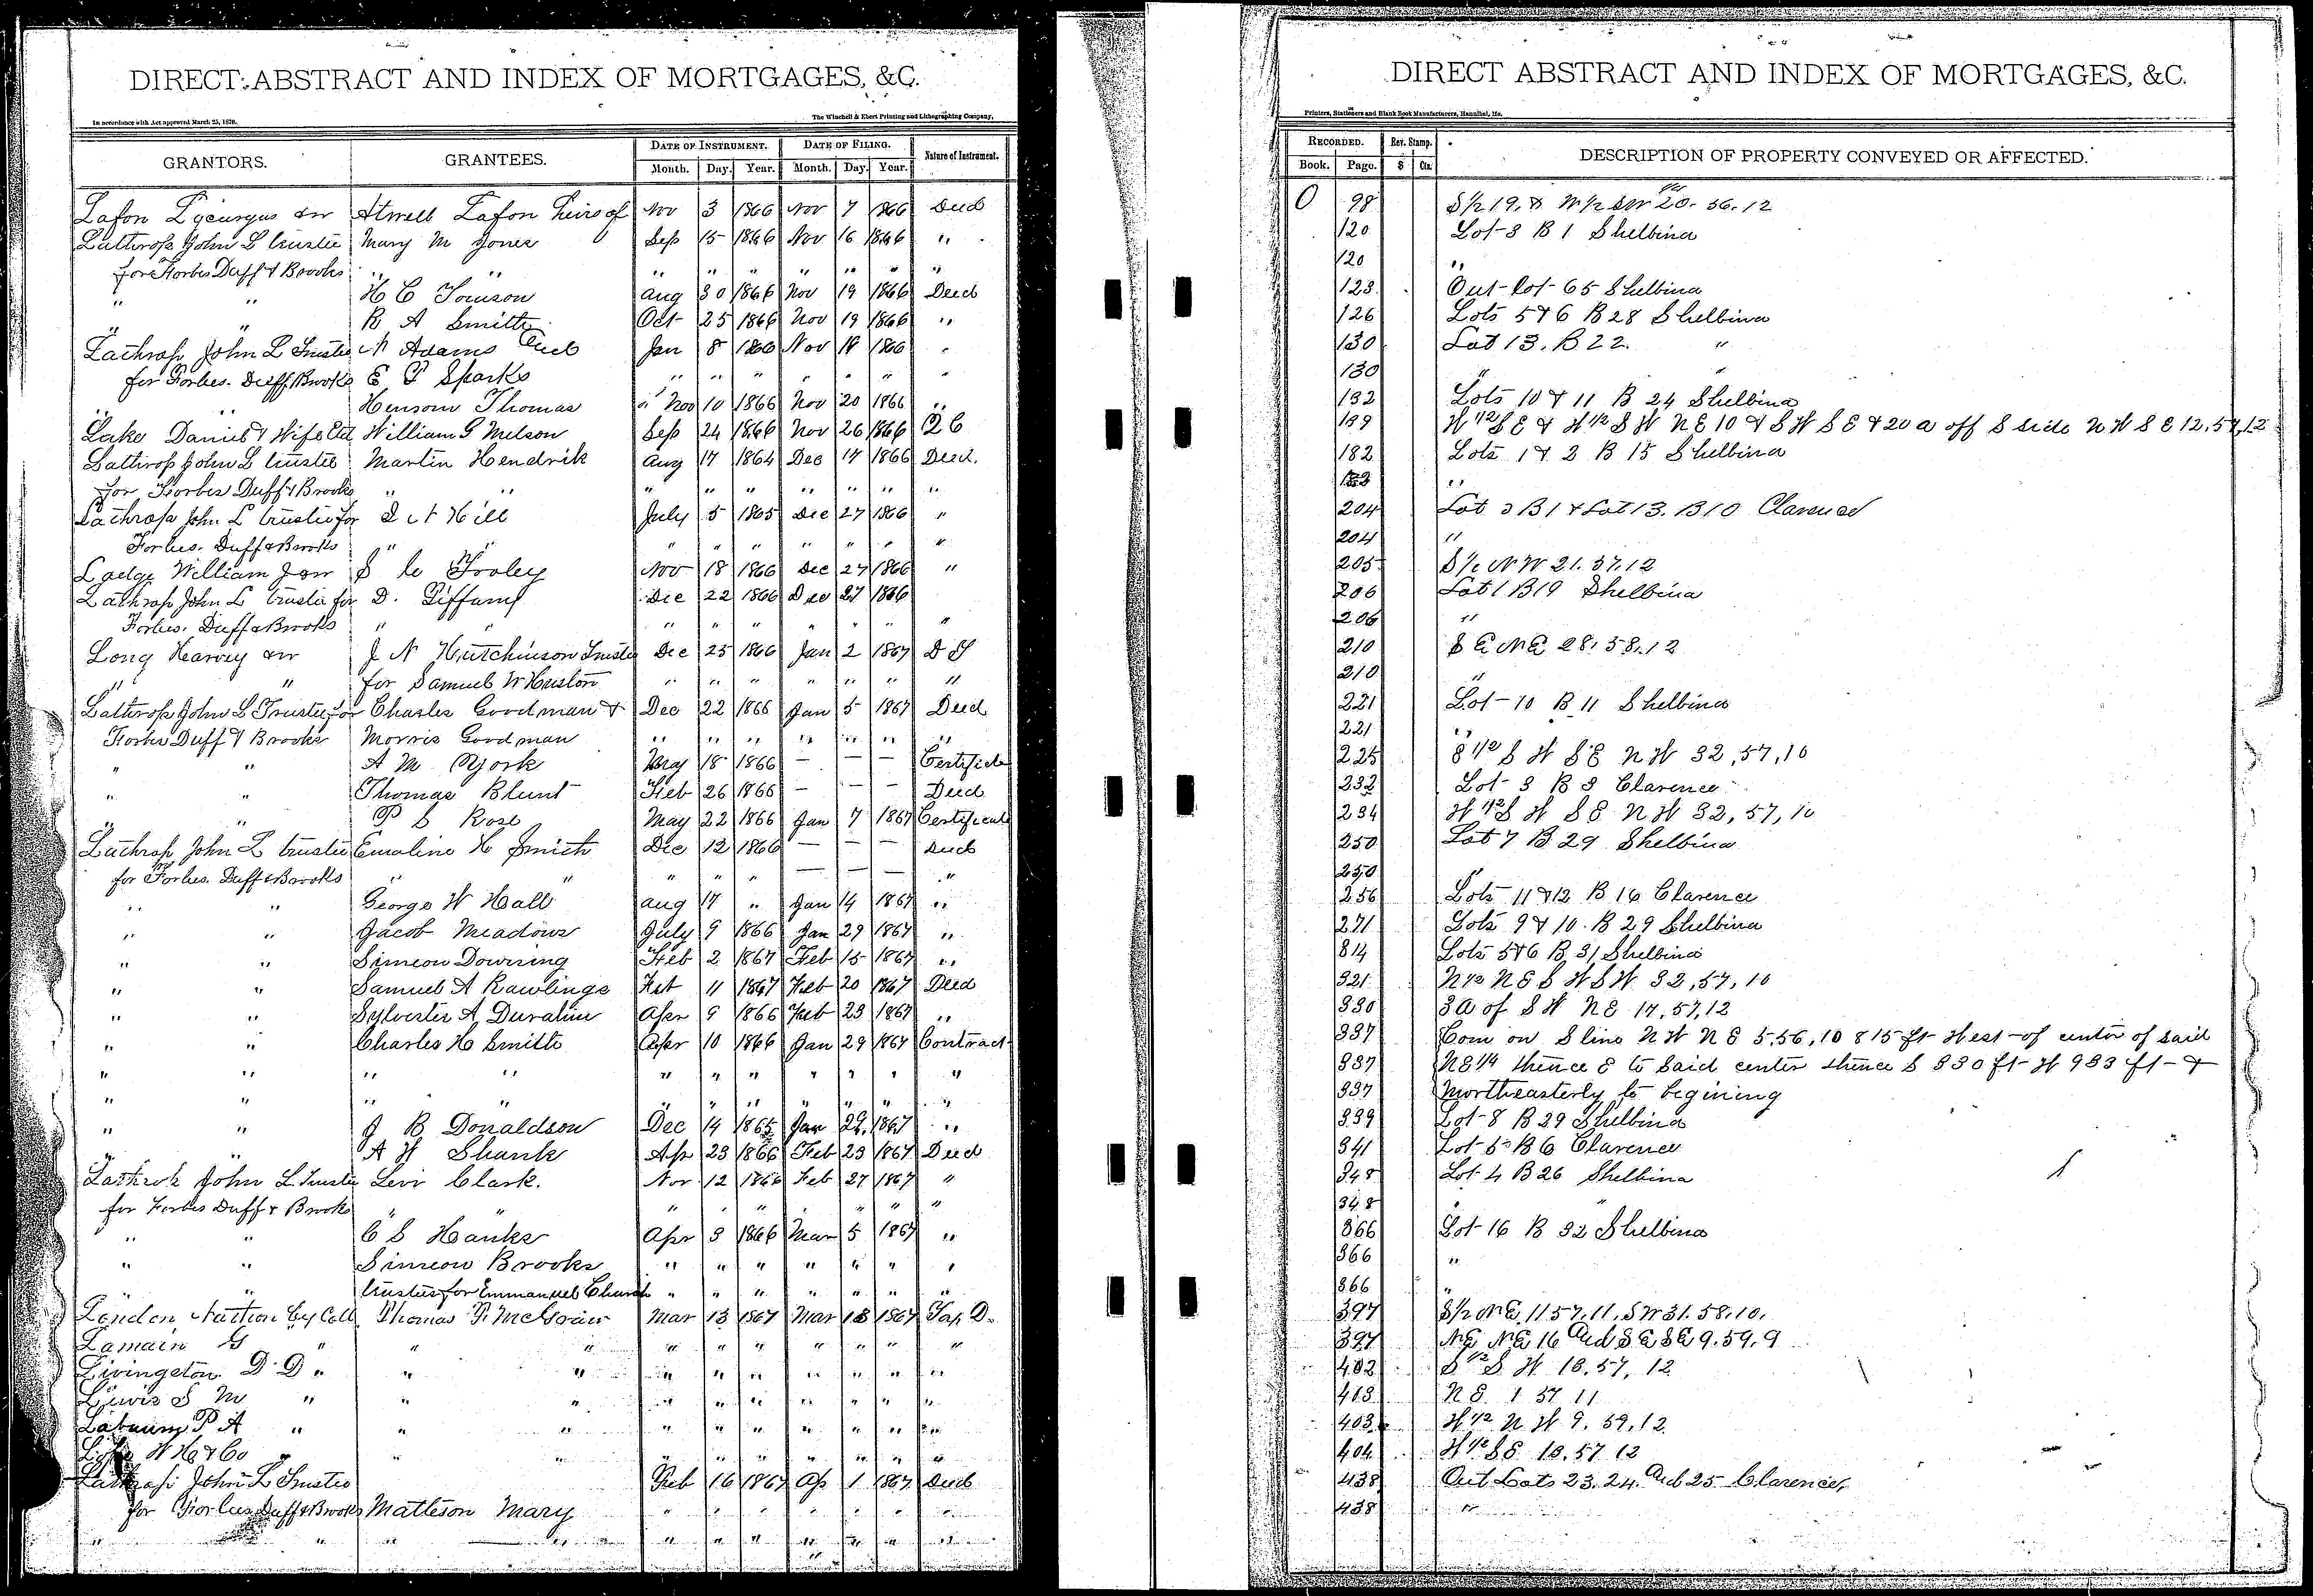 DIRECT ABSTRACT AND INDEX OF MORTGAGES, &C.
In accordance with Act approved March 25, 1870.
The Winchell & Ebert Printing and Lithographing Company,
GRANTORS. GRANTEES. DATE OF INSTRUMENT. DATE OF FILING. Nature of Instrument.
Month. Day. Year. Month. Day. Year.
Lafon Lycurgus & w Atwell Lafon heirs of Nov 3 1866 Nov 7 1866 Deed
Lathrop John L trustee Mary M Jones Sep 15 1866 Nov 16 1866 "
for Forbes Duff & Brooks " " " " " " " " "
" " H C Tomson Aug 30 1866 Nov 19 1866 Deed
" " R A Smith Oct 25 1866 Nov 19 1866 "
Lathrop John L Trustee N Adams and Jan 8 1866 Nov 19 1866 "
for Forbes Duff & Brooks E T Sparks " " " " " " "
" " Henson Thomas Nov 10 1866 Nov 20 1866 "
Lake Daniel & Wife William G Melson Sep 24 1866 Nov 26 1866 Q C
Lathrop John L trustee Martin Hendrik Aug 17 1864 Dec 17 1866 Deed.
for Forbes Duff & Brooks " " " " " " " " "
Lathrop John L trustee for Hill July 5 1865 Dec 27 1866 "
Forbes. Duff & Brooks " " " " " " " " "
William & w Nov 18 1866 Dec 27 1866 "
Lathrop John L trustee for D. Tiffany Dec 22 1866 Dec 27 1866
Forbes. Duff & Brooks " " " " " " " " "
Long Harvey & w J N Hutchinson Trustee Dec 25 1866 Jan 2 1867 D T
" " for Samuel W Huston " " " " " " "
Lathrop John L Trustee for Charles Goodman & Dec 22 1866 Jan 5 1867 Deed
Forbes Duff & Brooks Morris Goodman " " " " " " "
" " A M York May 18 1866 — — — Certificate
" " Thomas Blunt Feb 26 1866 — — — Deed
" " P S Rose May 22 1866 Jan 7 1867 Certificate
Lathrop John L trustee Emaline H Smith Dec 12 1866 — — — Deed
for Forbes. Duff & Brooks " " " " " — — — "
" " George W Hall Aug 17 " Jan 14 1867 "
" " Jacob Meadows July 9 1866 Jan 29 1867 "
" " Simeon Dowining Feb 2 1867 Feb 15 1867 "
" " Samuel A Rawlings Feb 11 1867 Feb 20 1867 Deed
" " Sylvester A Apr 9 1866 Feb 23 1867 "
" " Charles H Smith Apr 10 1866 Jan 29 1867 Contract
" " " " " " " " " " "
" " " " " " " " " " "
" " J B Donaldson Dec 14 1865 Jan 29 1867 "
" " A H Shank Ap 23 1866 Feb 23 1867 Deed
Lathrop John L Trustee Levi Clark. Nov 12 1866 Feb 27 1867 "
for Forbes Duff & Brooks " " " " " " " " "
" " C S Hanks Apr 3 1866 Mar 5 1867 "
" " Simeon Brooks " " " " " " "
" " trustees for Emmanuel Church " " " " " " "
London Nation by Coll Thomas Mar 13 1867 Mar 13 1867 Tax D.
Lamain G " " " " " " " " " "
Livingston D D " " " " " " " " " "
Lewis S M " " " " " " " " " "
P A " " " " " " " " " "
W H & Co " " " " " " " " " "
Lathrop John L Trustee Feb 16 1867 Ap 1 1867 Deed
for Forbes Duff & Brooks Matteson Mary " " " " " " "
" " " " " " " " " " "
DIRECT ABSTRACT AND INDEX OF MORTGAGES, &C.
Printers, Stationers and Blank Book Manufacturers, Hannibal, Mo.
RECORDED. Rev. Stamp. DESCRIPTION OF PROPERTY CONVEYED OR AFFECTED.
Book. Page. $ Cts.
O 98 S/2 19. & W/2 SW 20. 56. 12
120 Lot 3 B 1 Shelbina
120 "
123 Out-Lot 65 Shelbina
126 Lots 5 & 6 B 28 Shelbina
130 Lot 13. B 22. "
130 " "
132 Lots 10 & 11 B 24 Shelbina
139 W 1/2 S E & W 1/2 S W N E 10 & S W S E & 20 a off S side N W S E 12, 57, 12
182 Lots 1 & 2 B 15 Shelbina
182 "
204 Lot 3 B 1 & Lot 13. B 10 Clarence
204 "
205 S/2 NW 21. 57. 12
206 Lot 1 B 19 Shelbina
206 "
210 S E N E 28. 58. 12
210 "
221 Lot 10 B 11 Shelbina
221 "
225 E 1/2 S W S E N W 32, 57, 10
232 Lot 3 B 3 Clarence
234 W 1/2 S W S E N W 32, 57, 10
250 Lot 7 B 29 Shelbina
250 "
256 Lots 11 & 12 B 16 Clarence
271 Lots 9 & 10. B 29 Shelbina
314 Lots 5 & 6 B 31 Shelbina
321 N 1/2 N E S W S W 32, 57, 10
330 3 a of S W N E 17, 57, 12
337 Com on S line N W N E 5. 56, 10 815 ft West of center of said
337 N E 1/4 thence E to said center thence S 330 ft W 933 ft &
337 Northeasterly to begining
339 Lot 8 B 29 Shelbina
341 Lot 5 B 6 Clarence
348 Lot 4 B 26 Shelbina
348 " "
366 Lot 16 B 32 Shelbina
366 "
366 "
397 S/2 NE 11 57. 11. SW 31. 58. 10.
397 NE NE 16 and SE SE 9. 59. 9
402 S 1/2 S W 18. 57, 12
413 N E. 1 57 11
403 W 1/2 N W 9. 59. 12
404 W 1/2 S E 18. 57 12
438 Out Lots 23. 24. and 25 Clarence,
438 "